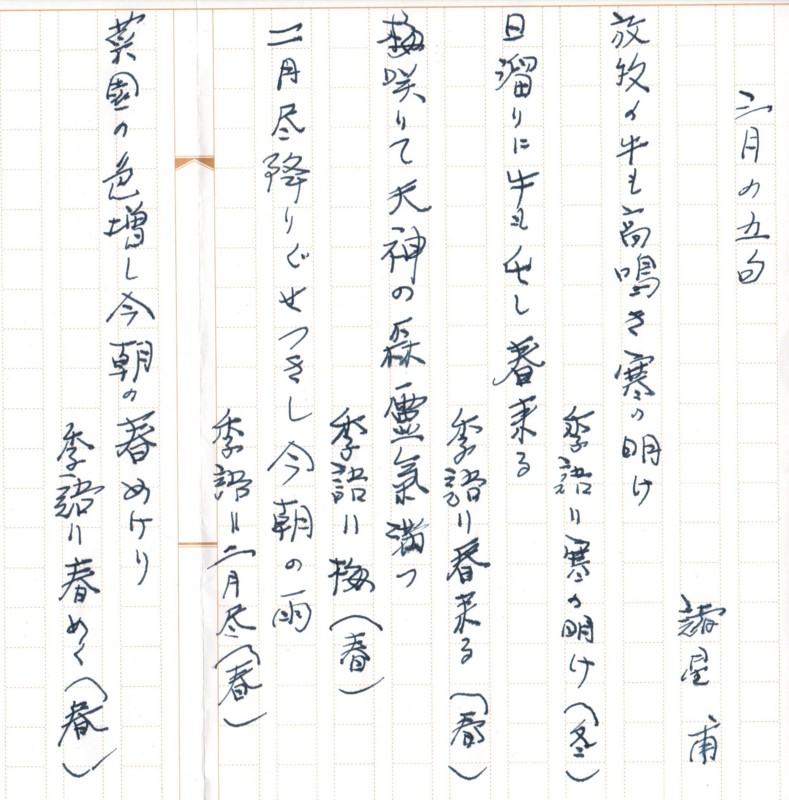 二月の五句
諸星 甫
放牧の牛も高鳴き寒の明け
季語＝寒の明け（冬）
日溜りに牛も出し春来る
季語＝春来る（春）
梅咲りて天神の森霊氣満つ
季語＝梅（春）
二月尽降りぐせつきし今朝の雨
季語＝二月尽（春）
菜園の色増し今朝の春めけり
季語＝春めく（春）